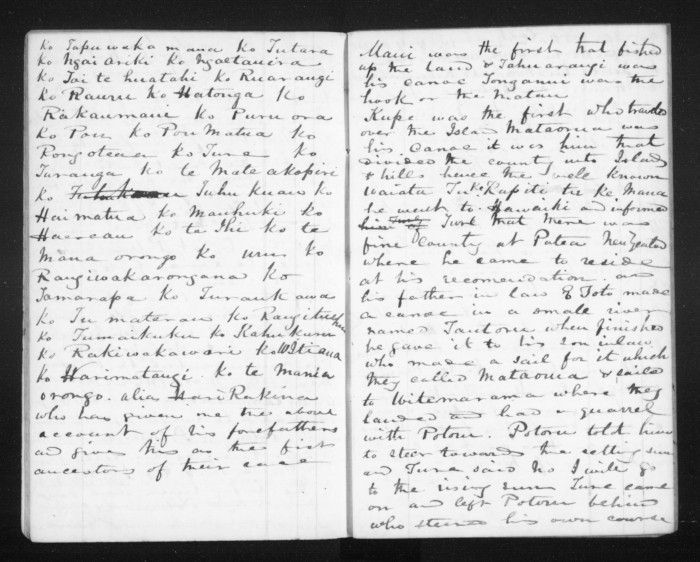 ko Tapuwaka mana ko Tutara
ko Ngai Ariki ko Ngaetauira
ko Tai te huatahi ko Ruarangi
ko Rauru ko Hatonga ko
Rakaumaui ko Puru ora
ko Pou ko Pou Matua ko
Rongoteaa ko Ture ko
Turanga ko te Male akopiri
ko Tuhu Kuau ko
Haimatua ko Mauhuki ko
ko te Ihi ko te
mana orongo ko uru ko
Rangiwakarongana ko
Tamarapa ko Turau Kawa
ko Tu materau ko
ko Tumaikuku ko Kahukuru
ko Rakiwakaware ko
ko Harimatangi ko te Mania
orongo. alias Hari Rakina
who has given me the above
account of his forefathers
and gives his as the first
ancestors of their race
Maui was the first that fished
up the land & Tahuarangi was
his canoe Tonganui was the
hook or the Matau
Kupe was the first who traveled
over the Islan Mataorua was
his canoe it was him that
divided the country into Islands
& hills hence the well known
waiata Kapiti tu ke Mana
he went to Hawaiki and informed
Ture that there was
fine country at Patea New Zealand
where he came to reside
at his recomendation. and
his father in law E Toto made
a canoe in a small river
named Tautoru when finished
he gave it to his son inlaw
who made a sail for it which
they called Mataorua & sailed
to Witemarama where they
landed and had a quarrel
with Potoru. Potoru told him
to steer towards the setting sun
and Ture said No I will go
to the rising sun Ture came
on and left Potoru behind
who steered his own course